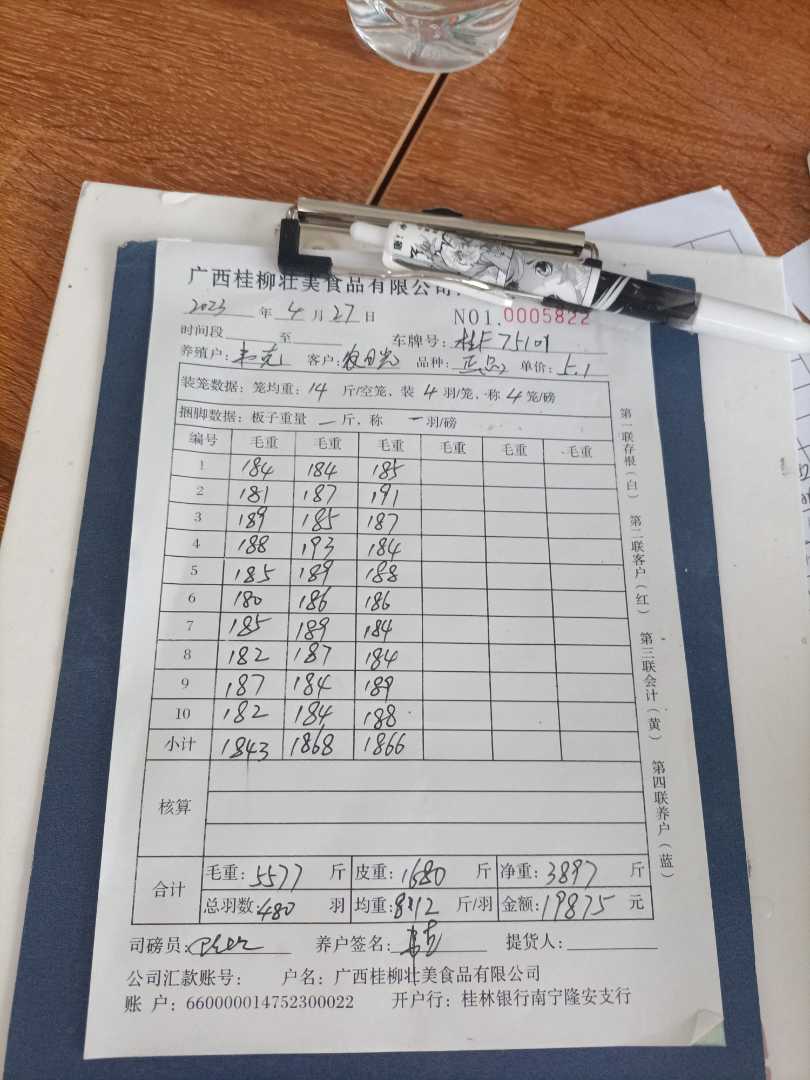 广西桂柳壮美食品有限公司
2023 年 4 月 27 日 NO1.0005822
时间段 至 车牌号:
养殖户: 客户: 品种: 正品 单价: 5.1
装笼数据: 笼均重: 14 斤/空笼、装 4 羽/笼、称 4 笼/磅
捆脚数据: 板子重量 一 斤, 称 一 羽/磅
编号 毛重 毛重 毛重 毛重 毛重 毛重
1 184 184 185
2 181 187 191
3 189 185 187
4 188 193 184
5 185 189 188
6 180 186 186
7 185 189 184
8 182 187 184
9 187 184 189
10 182 184 188
小计 1843 1868 1866
核算
合计
毛重: 5577 斤 皮重: 1680 斤 净重: 3897 斤
总羽数: 480 羽 均重: 8.12 斤/羽 金额: 19875 元
司磅员: 养户签名: 提货人:
公司汇款账号: 户名: 广西桂柳壮美食品有限公司
账 户: 660000014752300022 开户行: 桂林银行南宁隆安支行
第一联存根(白) 第二联客户(红) 第三联会计(黄) 第四联养户(蓝)